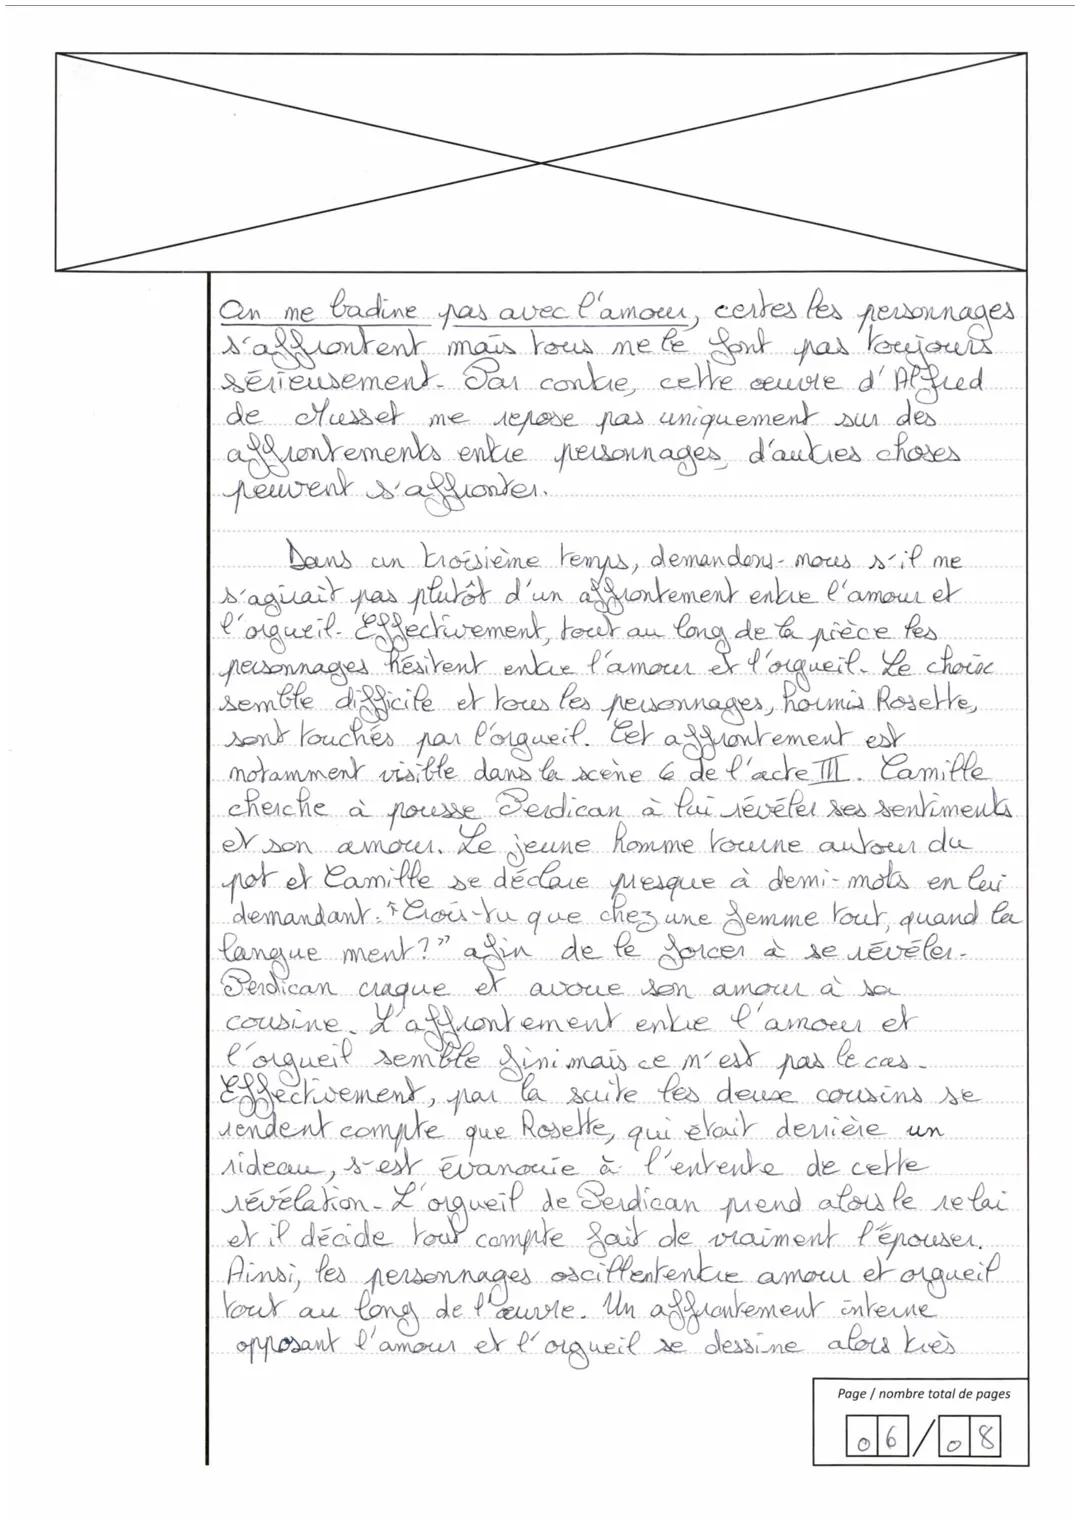 On ne badine pas avec l'amour, certes les personnages
s'affrontent mais tous ne le font pas toujours
sérieusement. Par contre, cette œuvre d'Alfred
de Musset ne repose pas uniquement sur des
affrontements entre personnages, d'autres choses
peuvent s'affronter.
Dans un troisième temps, demandons-nous s'il ne
s'agirait pas plutôt d'un affrontement entre l'amour et
l'orgueil. Effectivement, tout au long de la pièce les
personnages hésitent entre l'amour et l'orgueil. Le choix
semble difficile et tous les personnages, hormis Rosette,
sont touchés par l'orgueil. Cet affrontement est
notamment visible dans la scène 6 de l'acte III. Camille
cherche à pousse Perdican à lui révéler ses sentiments
et son amour. Le jeune homme tourne autour du
pot et Camille se déclare presque à demi-mots en lui
demandant : "Crois-tu que chez une femme tout, quand la
langue ment ?" afin de le forcer à se révéler.
Perdican craque et avoue son amour à sa
cousine. L'affrontement entre l'amour et
l'orgueil semble fini mais ce n'est pas le cas.
Effectivement, par la suite les deux cousins se
rendent compte que Rosette, qui était derrière un
rideau, s'est évanouie à l'entente de cette
révélation. L'orgueil de Perdican prend alors le relai
et il décide tout compte fait de vraiment l'épouser.
Ainsi, les personnages oscillent entre amour et orgueil
tout au long de l'œuvre. Un affrontement interne
opposant l'amour et l'orgueil se dessine alors très
Page / nombre total de pages
06/08